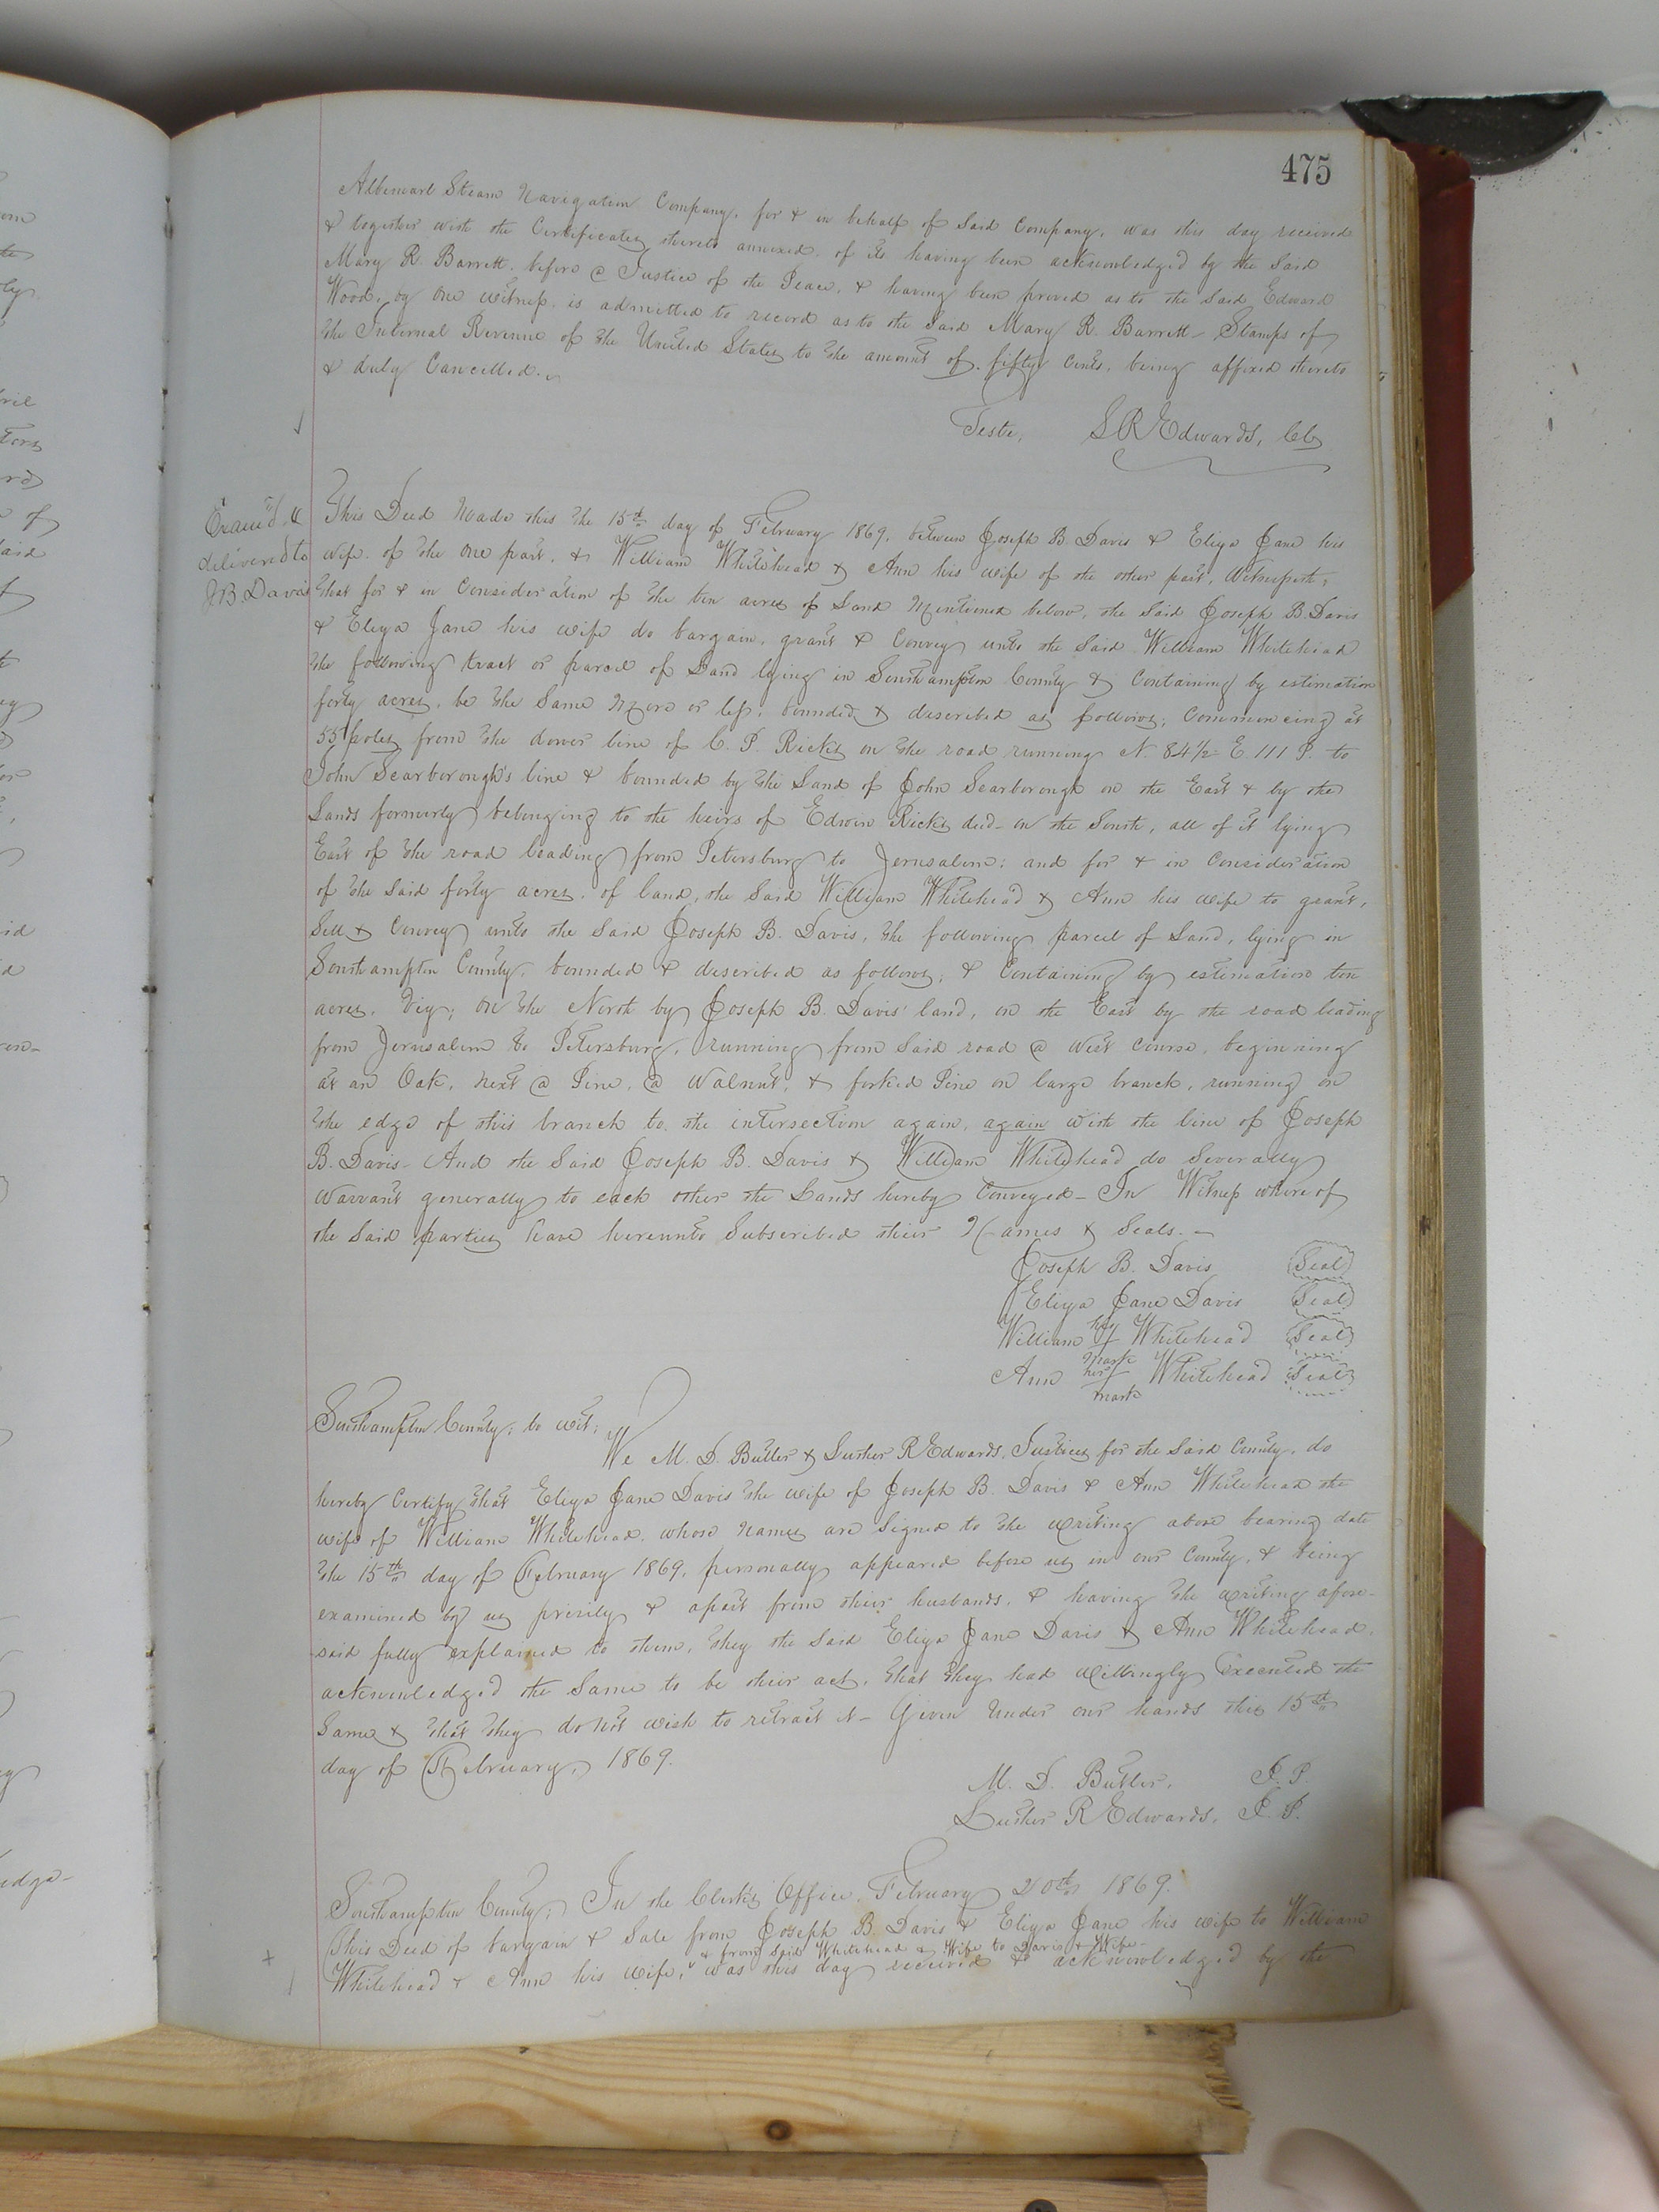 475
Albemarl Steam Navigation Company, for & in behalf of Said Company, was this day received
& together with the Certificates thereto annexed, of its having been acknowledged by the Said
Mary R. Barrett, before a Justice of the Peace, & having been proved as to the Said Edward
Wood, by one witness, is admitted to record as to the Said Mary R. Barrett - Stamps of
the Internal Revenue of the United States to the amount of fifty Cents, being affixed thereto
& duly Cancelled.
Teste, S R Edwards, Clk
Exam'd & delivered to J.B. Davis
This Deed Made this the 15th day of February 1869, between Joseph B. Davis & Eliza Jane his
wife of the one part, & William Whitehead & Ann his wife of the other part, Witnesseth,
that for & in Consideration of the ten acres of Land Mentioned below, the Said Joseph B. Davis
& Eliza Jane his wife do bargain, grant & Convey unto the Said William Whitehead
the following tract or parcel of Land lying in Southampton County & Containing by estimation
forty acres, be the Same More or less, bounded & described as follows; Commencing at
55 poles from the dower line of C. P. Ricks on the road running N. 84½ E. 111 P. to
John Scarborough's line & bounded by the Land of John Scarborough on the East & by the
Lands formerly belonging to the heirs of Edwin Ricks decd - on the South, all of it lying
East of the road leading from Petersburg to Jerusalem; and for & in Consideration
of the Said forty acres of land, the Said William Whitehead & Ann his wife to grant,
Sell & Convey unto the Said Joseph B. Davis, the following parcel of Land, lying in
Southampton County, bounded & described as follows, & Containing by estimation ten
acres, Viz; on the North by Joseph B. Davis' land, on the East by the road leading
from Jerusalem to Petersburg, running from Said road a West Course, beginning
at an Oak, next a Pine, a Walnut, & forked Pine on large branch, running on
the edge of this branch to the intersection again, again with the line of Joseph
B. Davis - And the Said Joseph B. Davis & William Whitehead do Severally
Warrant generally to each other the Lands hereby Conveyed - In Witness whereof
the Said parties have hereunto Subscribed their Names & Seals. -
Joseph B. Davis (Seal)
Eliza Jane Davis (Seal)
William his mark Whitehead (Seal)
Ann her mark Whitehead (Seal)
Southampton County; to wit;
We M. D. Butler & Luther R Edwards, Justices for the Said County, do
hereby Certify that Eliza Jane Davis the wife of Joseph B. Davis & Ann Whitehead the
wife of William Whitehead, whose names are Signed to the writing above bearing date
the 15th day of February 1869, personally appeared before us in our County, & being
examined by us privily & apart from their husbands, & having the writing afore-
said fully explained to them, they the Said Eliza Jane Davis & Ann Whitehead,
acknowledged the Same to be their act, that they had willingly Executed the
Same & that they do not wish to retract it - Given Under our hands this 15th
day of February, 1869.
M. D. Butler, J. P.
Luther R Edwards, J. P.
Southampton County; In the Clerk's Office, February 20th 1869.
This Deed of bargain & Sale from Joseph B. Davis & Eliza Jane his wife to William
& from Said Whitehead & Wife to Davis & Wife -
Whitehead & Ann his wife, was this day received & acknowledged by the